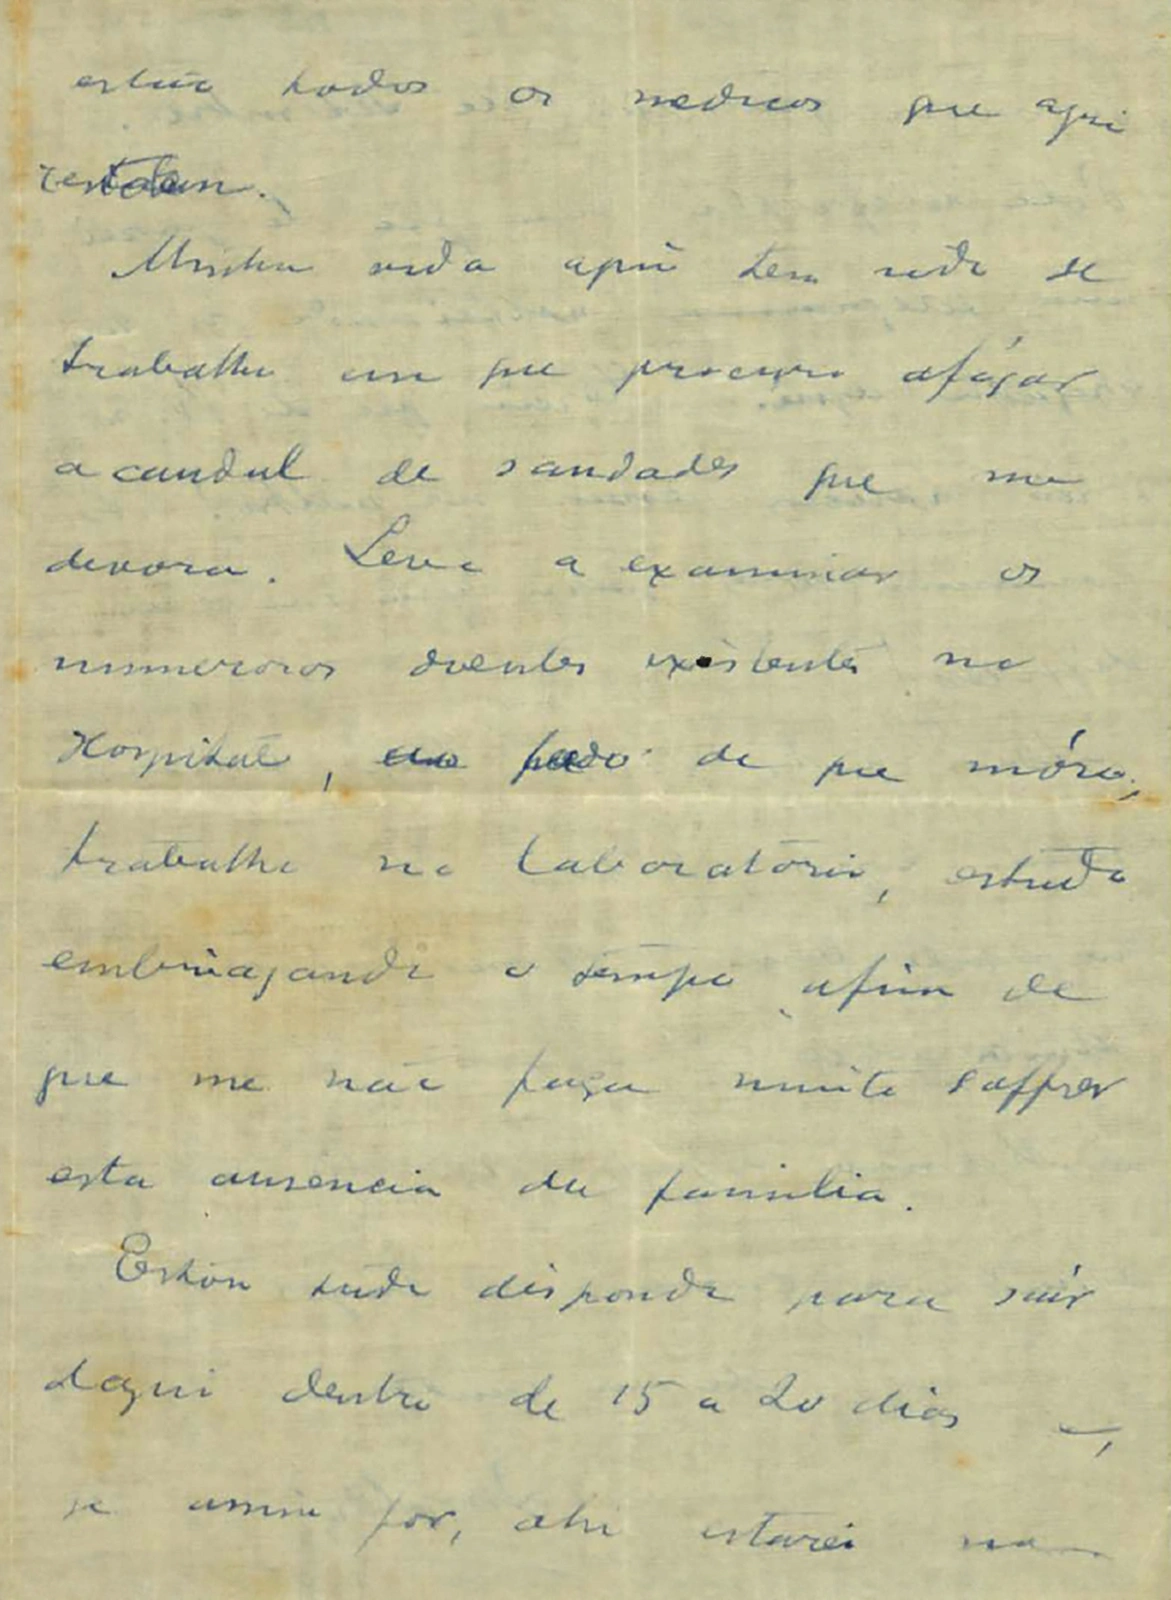 estão todos os medicos que aqui
restam.
Minha vida aqui tem sido de
trabalho em que procuro afógar
a caudal de saudades que me
devora. Levo a examinar os
numerosos doentes existentes no
Hospital, ao lado de que móro,
trabalho no Laboratorio, estudo
embriagando o tempo afim de
que me não faça muito soffrer
esta ausencia da familia.
Estou tudo dispondo para sáir
daqui dentro de 15 a 20 dias –,
se assim for, ahi estarei na